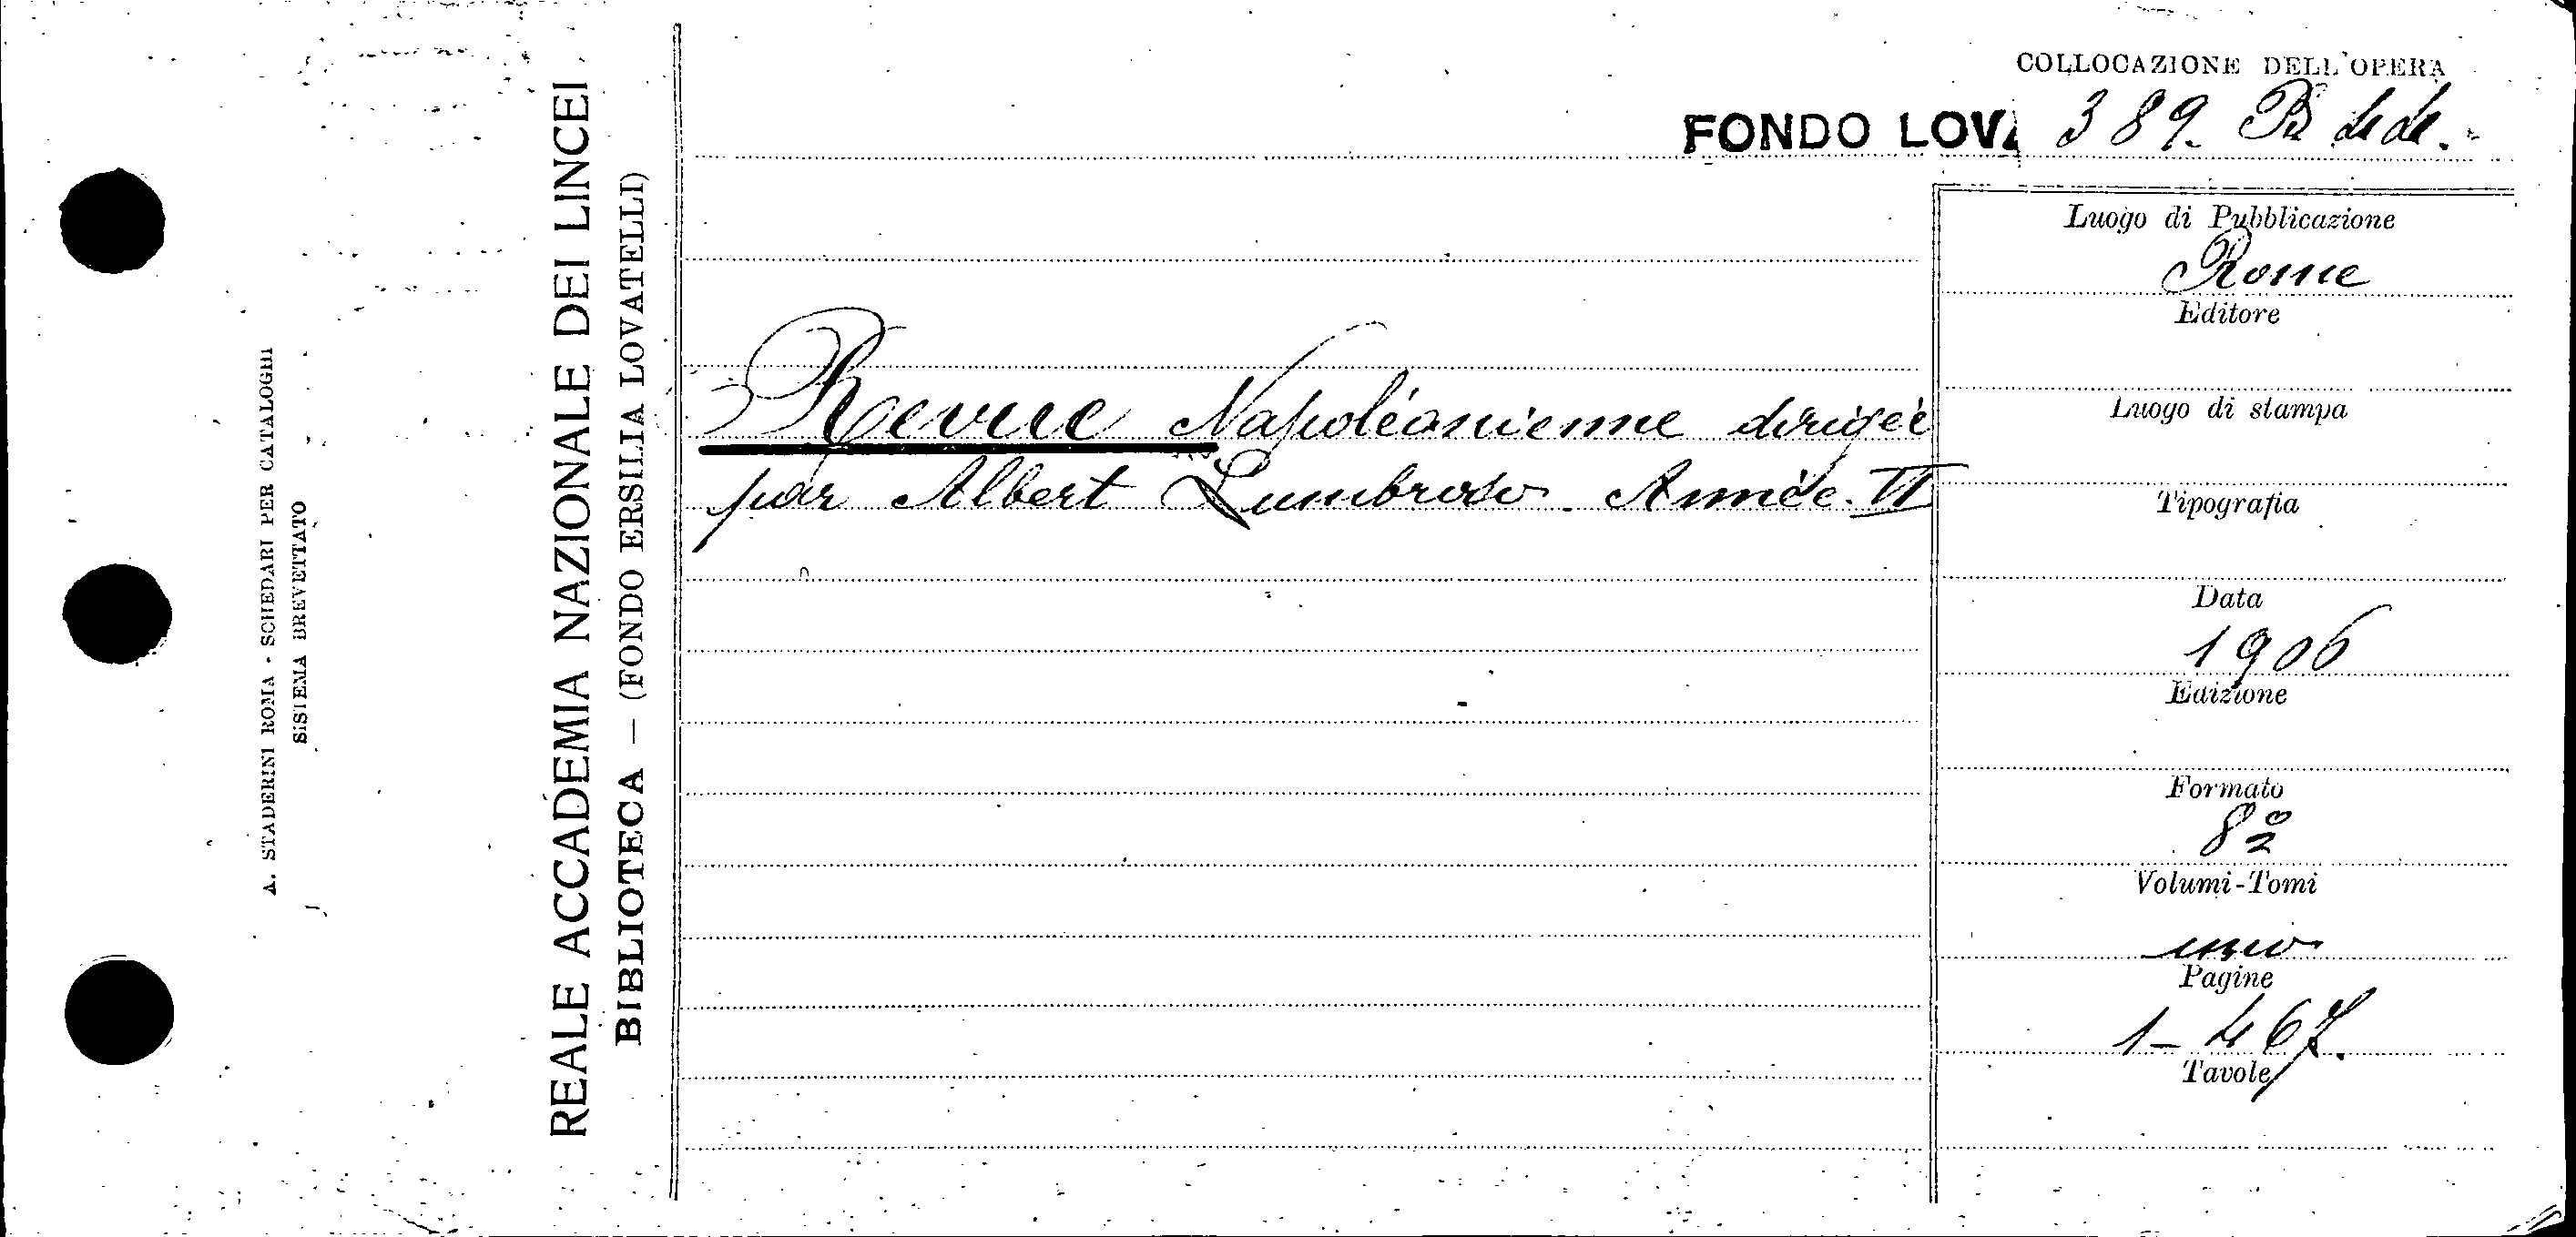 A. STADERINI ROMA - SCHEDARI PER CATALOGHI
SISTEMA BREVETTATO
REALE ACCADEMIA NAZIONALE DEI LINCEI
BIBLIOTECA — (FONDO ERSILIA LOVATELLI)
COLLOCAZIONE DELL'OPERA
FONDO LOVA 389. B
Revue Napoléonienne dirigée
par Albert Lumbroso. Année. VI
Luogo di Pubblicazione
Rome
Editore
Luogo di stampa
Tipografia
Data
1906
Edizione
Formato
8º
Volumi-Tomi
uno
Pagine
1-467.
Tavole